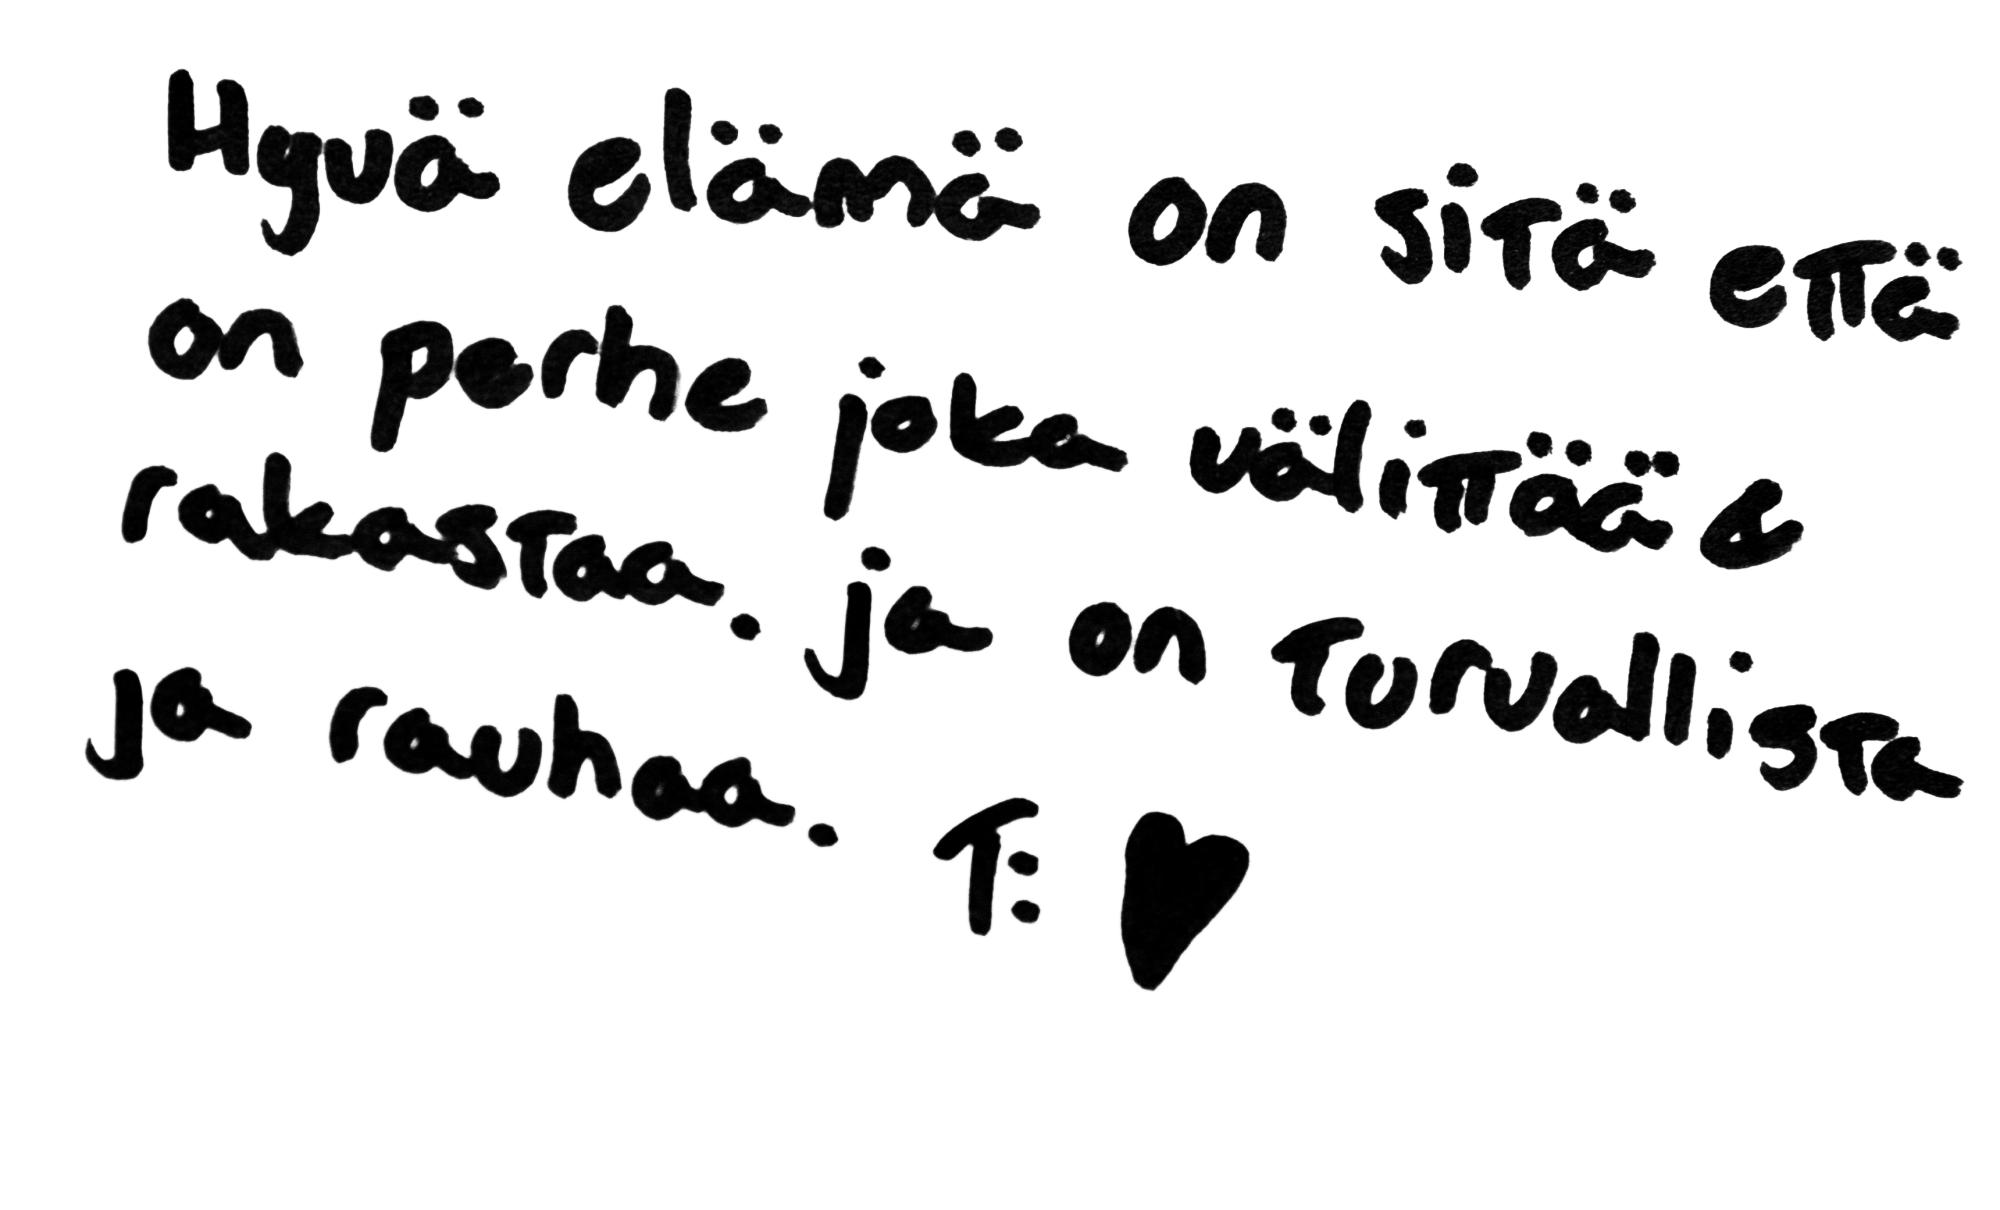 Hyvä elämä on sitä että
on perhe joka välittää &
rakastaa. ja on turvallista
ja rauhaa. T: ♥